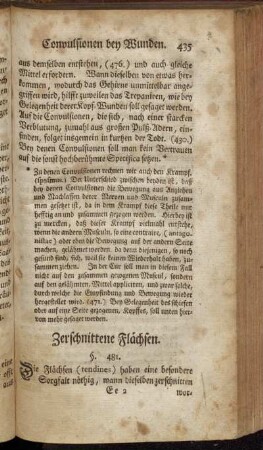 Convulsionen bey Wunden. 435
aus demselben entstehen, (476.) und auch gleiche
Mittel erfordern. Wann dieselben von etwas her-
kommen, wodurch das Gehirne unmittelbar ange-
griffen wird, hilfft zuweilen das Trepaniren, wie bey
Gelegenheit derer Kopf-Wunden soll gesaget werden.
Auf die Convulsionen, die sich, nach einer starcken
Verblutung, zumahl aus grossen Pulß-Adern, ein-
finden, folget insgemein in kurtzen der Todt. (430.)
Bey denen Convulsionen soll man kein Vertrauen
auf die sonst hochberühmte Specifica setzen. *
* Zu denen Convulsionen rechnen wir auch den Krampf.
(spasmum.) Der Unterscheid zwischen beyden ist, daß
bey denen Convulsionen die Bewegung aus Anziehen
und Nachlassen derer Nerven und Musculn zusam-
men gesetzet ist, da in dem Krampf diese Theile nur
hefftig an und zusammen gezogen werden. Hierbey ist
zu mercken, daß dieser Krampf vielmahl entstehe,
wenn die andern Musculn, so eine contraire, (antago-
nilbar) oder eben die Bewegung auf der andern Seite
verrichten, gelähmet worden, da denn diejenigen, so noch
gesund sind, sich, weil sie keinen Wiederhalt haben, zu-
sammen ziehen. In der Cur soll man in diesem Fall
nicht auf den zusammen gezogenen Muscul, sondern
auf den gelähmten, Mittel appliciren, und zwar solche,
durch welche die Empfindung und Bewegung wieder
hergestellet wird. (471.) Bey Gelegenheit des schiefen
oder auf eine Seite gezogenen Kopffes, soll unten hier-
von mehr gesaget werden.
Zerschnittene Flächsen.
§. 481.
Die Flächsen (tendines) haben eine besondere
Sorgfalt nöthig, wann dieselben zerschnitten
Ee 2 wor-